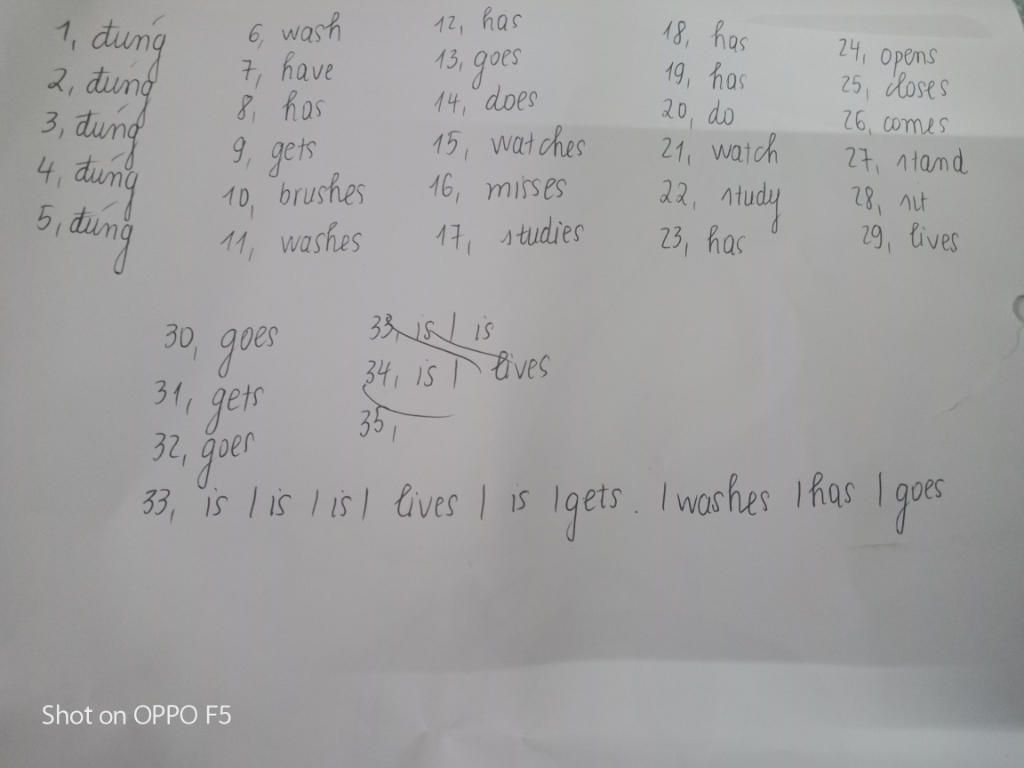 1, đúng
2, đúng
3, đúng
4, đúng
5, đúng
6, wash
7, have
8, has
9, gets
10, brushes
11, washes
12, has
13, goes
14, does
15, watches
16, misses
17, studies
18, has
19, has
20, do
21, watch
22, study
23, has
24, opens
25, closes
26, comes
27, stand
28, sit
29, lives
30, goes
31, gets
32, goes
33, is | is
34, is | lives
35,
33, is | is | is | lives | is | gets . | washes | has | goes
Shot on OPPO F5